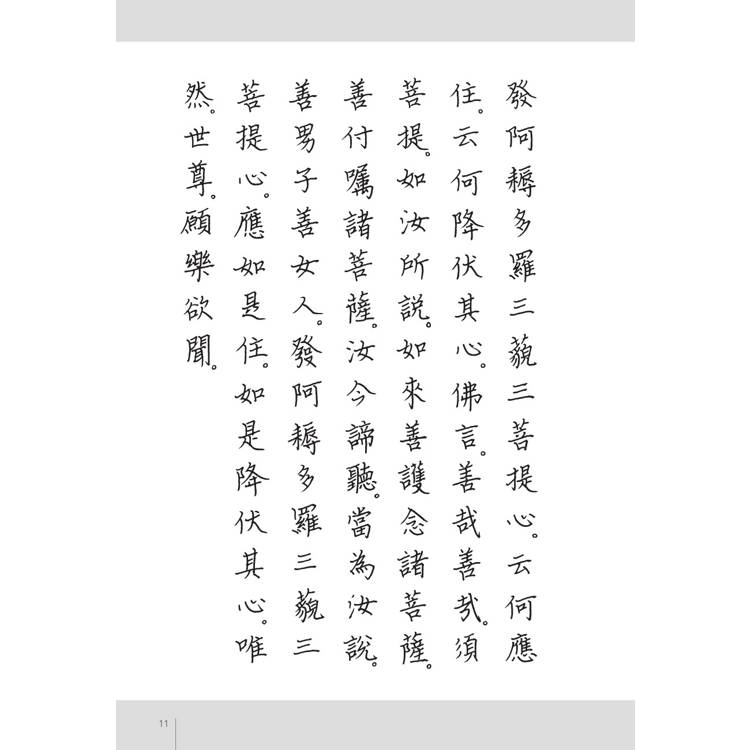 發阿耨多羅三藐三菩提心。云何應
住。云何降伏其心。佛言。善哉善哉。須
菩提。如汝所說。如來善護念諸菩薩。
善付囑諸菩薩。汝今諦聽。當為汝說。
善男子善女人。發阿耨多羅三藐三
菩提心。應如是住。如是降伏其心。唯
然。世尊。願樂欲聞。
11